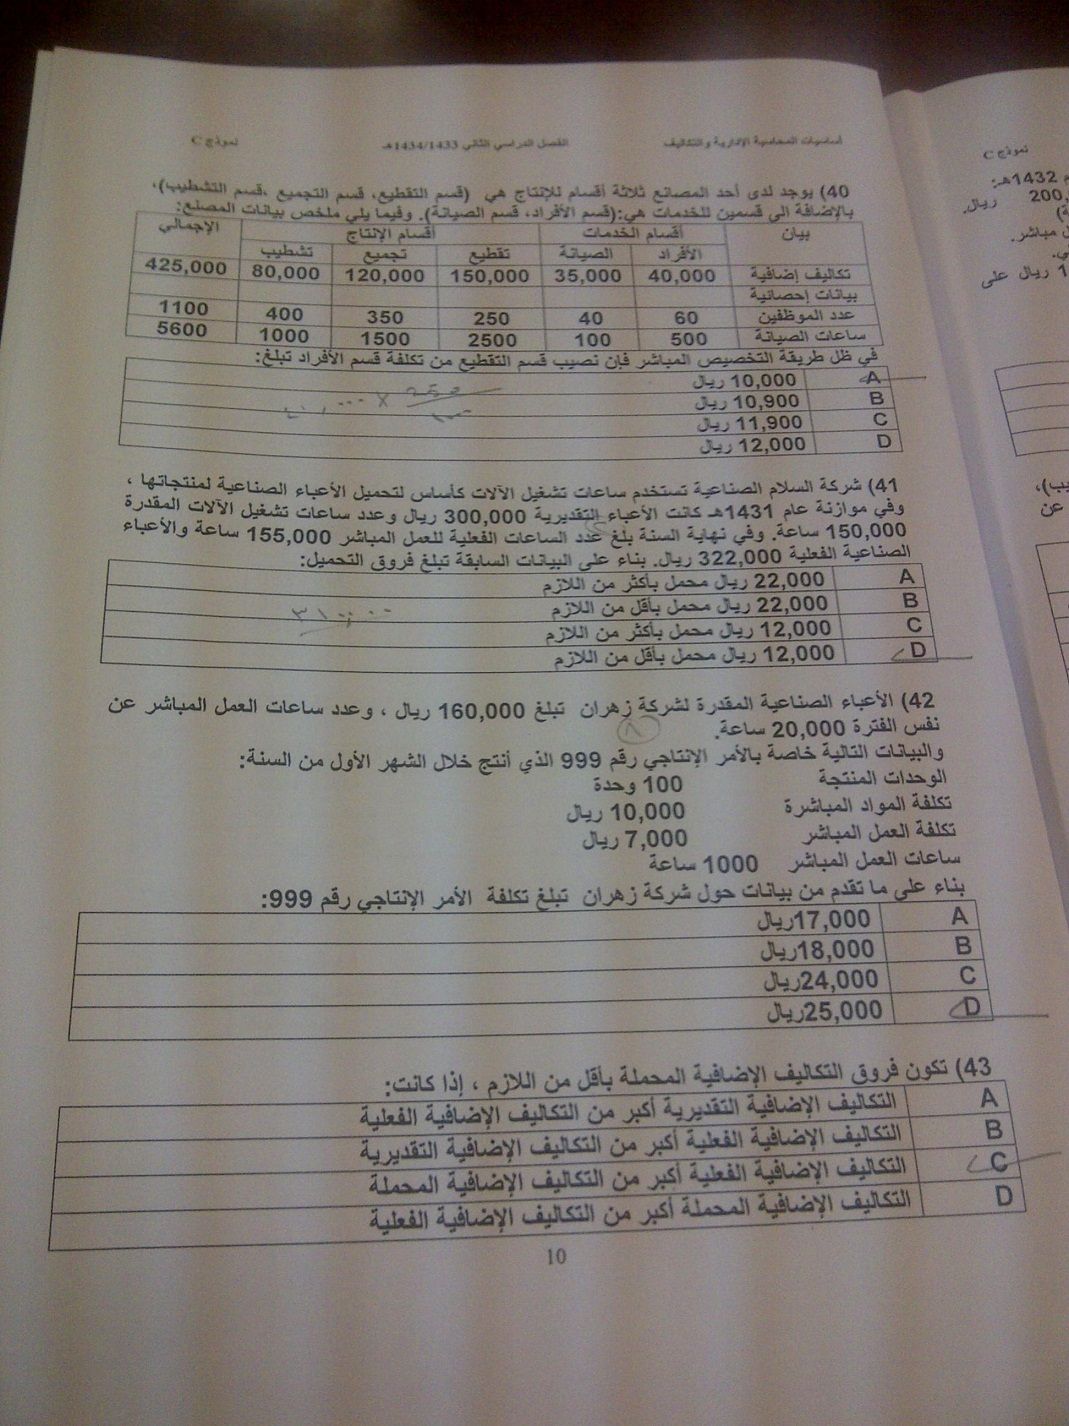 أساسيات المحاسبة الإدارية والتكاليف الفصل الدراسي الثاني 1434/1433هـ نموذج C
40) يوجد لدى أحد المصانع ثلاثة أقسام للإنتاج هي (قسم التقطيع، قسم التجميع ،قسم التشطيب)،
بالإضافة الى قسمين للخدمات هي:(قسم الأفراد، قسم الصيانة). وفيما يلي ملخص بيانات المصنع:
بيان أقسام الخدمات أقسام الإنتاج الإجمالي
الأفراد الصيانة تقطيع تجميع تشطيب
تكاليف إضافية 40,000 35,000 150,000 120,000 80,000 425,000
بيانات إحصائية
عدد الموظفين 60 40 250 350 400 1100
ساعات الصيانة 500 100 2500 1500 1000 5600
في ظل طريقة التخصيص المباشر فإن نصيب قسم التقطيع من تكلفة قسم الأفراد تبلغ:
A 10,000 ريال
B 10,900 ريال
C 11,900 ريال
D 12,000 ريال
41) شركة السلام الصناعية تستخدم ساعات تشغيل الآلات كأساس لتحميل الأعباء الصناعية لمنتجاتها ،
وفي موازنة عام 1431هـ كانت الأعباء التقديرية 300,000 ريال وعدد ساعات تشغيل الآلات المقدرة
150,000 ساعة. وفي نهاية السنة بلغ عدد الساعات الفعلية للعمل المباشر 155,000 ساعة والأعباء
الصناعية الفعلية 322,000 ريال. بناء على البيانات السابقة تبلغ فروق التحميل:
A 22,000 ريال محمل بأكثر من اللازم
B 22,000 ريال محمل بأقل من اللازم
C 12,000 ريال محمل بأكثر من اللازم
D 12,000 ريال محمل بأقل من اللازم
42) الأعباء الصناعية المقدرة لشركة زهران تبلغ 160,000 ريال ، وعدد ساعات العمل المباشر عن
نفس الفترة 20,000 ساعة.
والبيانات التالية خاصة بالأمر الإنتاجي رقم 999 الذي أنتج خلال الشهر الأول من السنة:
الوحدات المنتجة 100 وحدة
تكلفة المواد المباشرة 10,000 ريال
تكلفة العمل المباشر 7,000 ريال
ساعات العمل المباشر 1000 ساعة
بناء على ما تقدم من بيانات حول شركة زهران تبلغ تكلفة الأمر الإنتاجي رقم 999:
A 17,000ريال
B 18,000ريال
C 24,000ريال
D 25,000ريال
43) تكون فروق التكاليف الإضافية المحملة بأقل من اللازم ، إذا كانت:
A التكاليف الإضافية التقديرية أكبر من التكاليف الإضافية الفعلية
B التكاليف الإضافية الفعلية أكبر من التكاليف الإضافية التقديرية
C التكاليف الإضافية الفعلية أكبر من التكاليف الإضافية المحملة
D التكاليف الإضافية المحملة أكبر من التكاليف الإضافية الفعلية
10
نموذج C